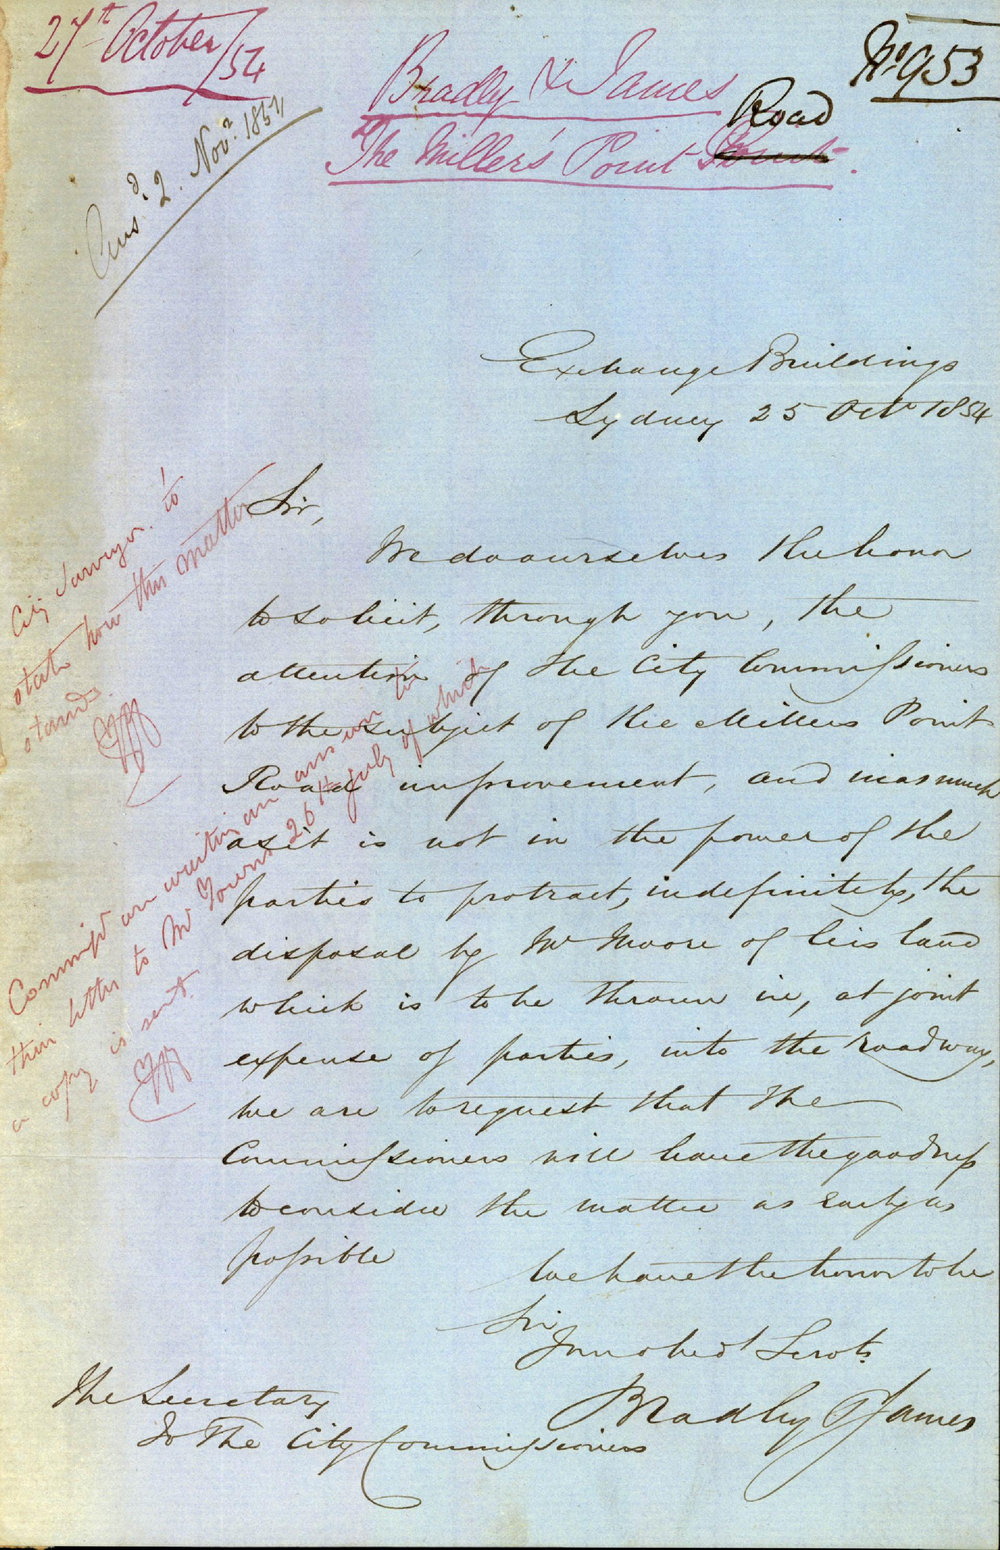 27th October/54
Bradly & James
Road
The Miller's Point
No 953
Ansd. 2. Novr. 1854
Exchange Buildings
Sydney 25 Octr 1854
Sir,
We do ourselves the honor
to solicit, through you, the
attention of the City Commissioners
to the subject of the Millers Point
Road improvement, and inasmuch
as it is not in the power of the
parties to protract, indefinitely, the
disposal by Mr Moore of his land
which is to be thrown in, at joint
expense of parties, into the roadway,
we are to request that the
Commissioners will have the goodness
to consider the matter as early as
possible
We have the honor to be
Sir
Yr mo obedt Servts
Bradly & James
The Secretary
To The City Commissioners
City Surveyor to
state how this matter
stands
Commrs are waiting an answer to
their letter to Mr Towns 26th July of which
a copy is sent